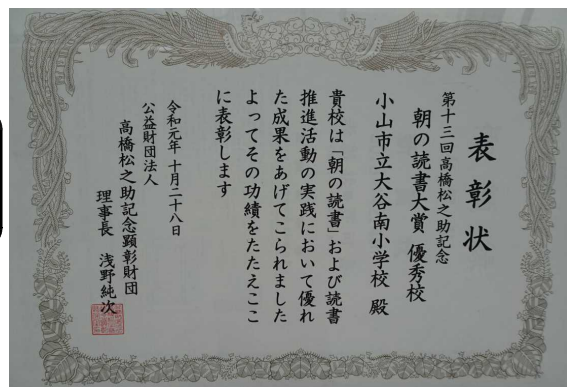 表彰状
第十三回高橋松之助記念
朝の読書大賞 優秀校
小山市立大谷南小学校 殿
貴校は「朝の読書」および読書
推進活動の実践において優れ
た成果をあげてこられました
よってその功績をたたえここ
に表彰します
令和元年十月二十八日
公益財団法人
高橋松之助記念顕彰財団
理事長 浅野純次